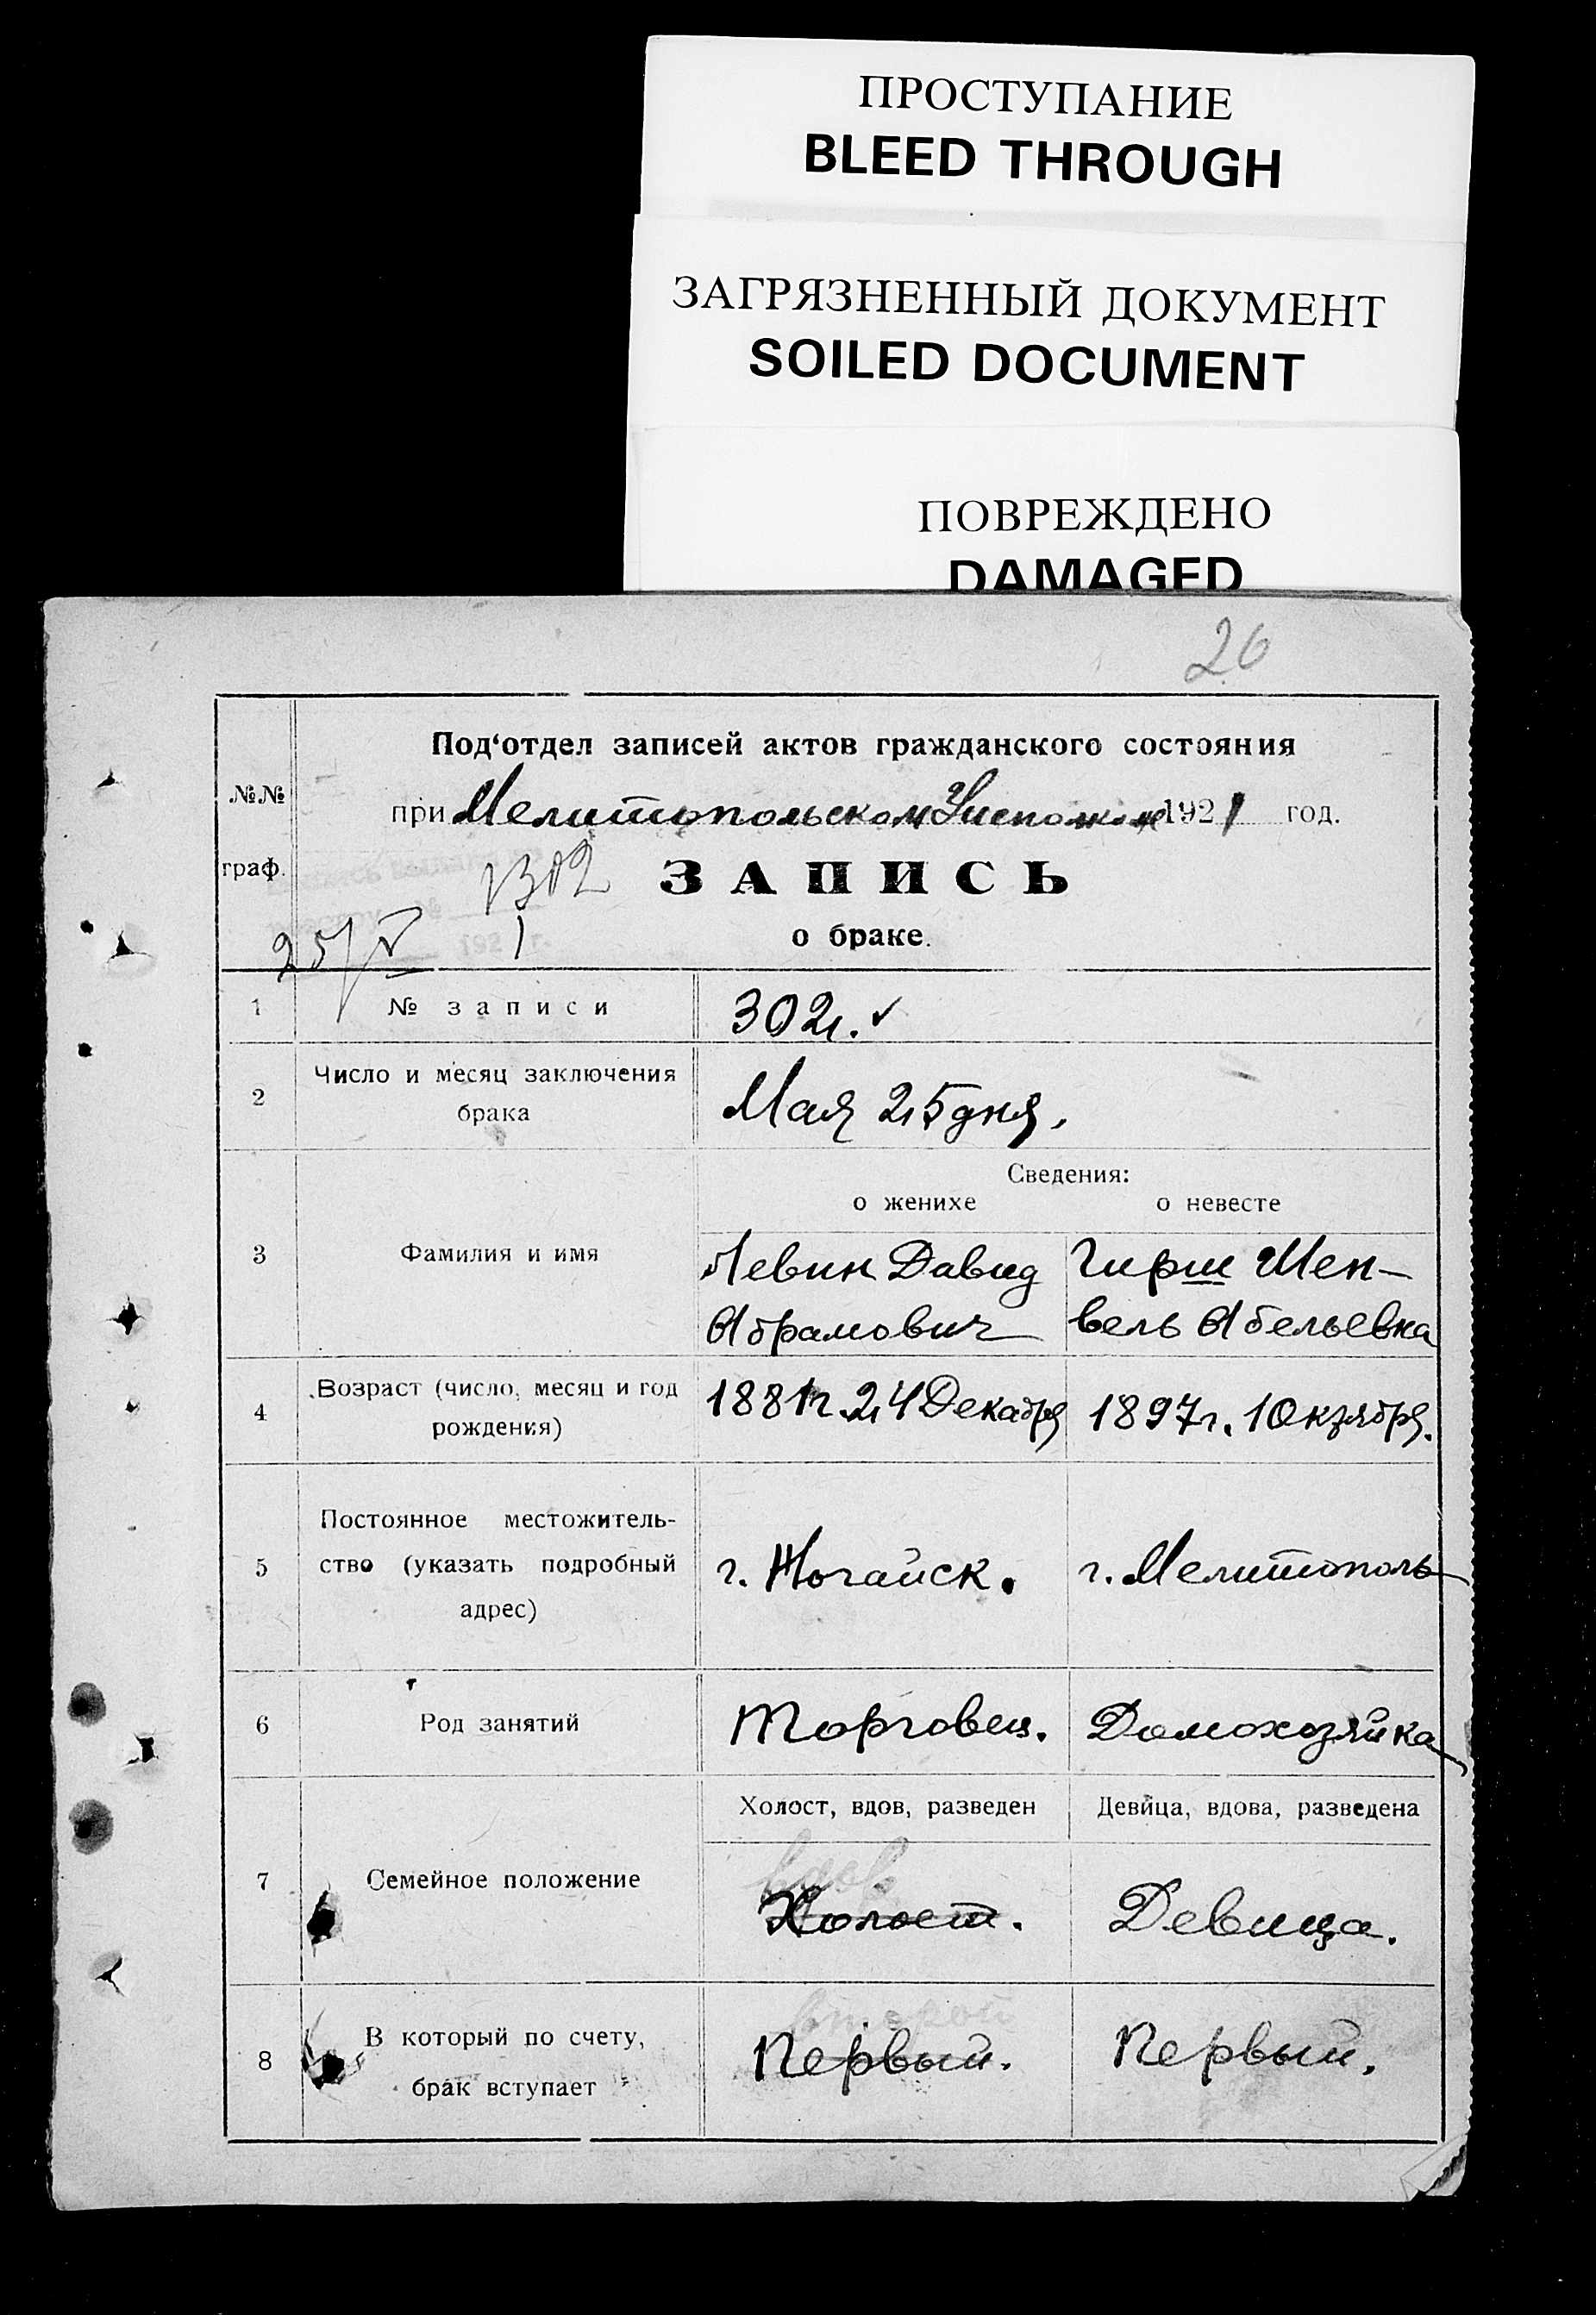 ПРОСТУПАНИЕ
BLEED THROUGH
ЗАГРЯЗНЕННЫЙ ДОКУМЕНТ
SOILED DOCUMENT
ПОВРЕЖДЕНО
DAMAGED
26
Под‘отдел записей актов гражданского состояния
№№
при Мелитопольском Уисполкоме 1921 год.
граф.
302
ЗАПИСЬ
25/V 1921 г.
о браке.
1 № записи 302. ✓
2 Число и месяц заключения
брака
Мая 25 дня.
Сведения:
о женихе о невесте
3 Фамилия и имя
Левин Давид
Абрамович
Гирш Шен-
вель Абельевна
4 Возраст (число, месяц и год
рождения)
1881г. 24 Декабря
1897г. 1 Октября.
5 Постоянное местожитель-
ство (указать подробный
адрес)
г. Ногайск.
г. Мелитополь
6 Род занятий
Торговец.
Домохозяйка
Холост, вдов, разведен
Девица, вдова, разведена
7 Семейное положение
вдов
Холост.
Девица.
8 В который по счету,
брак вступает
второй
Первый.
Первый.